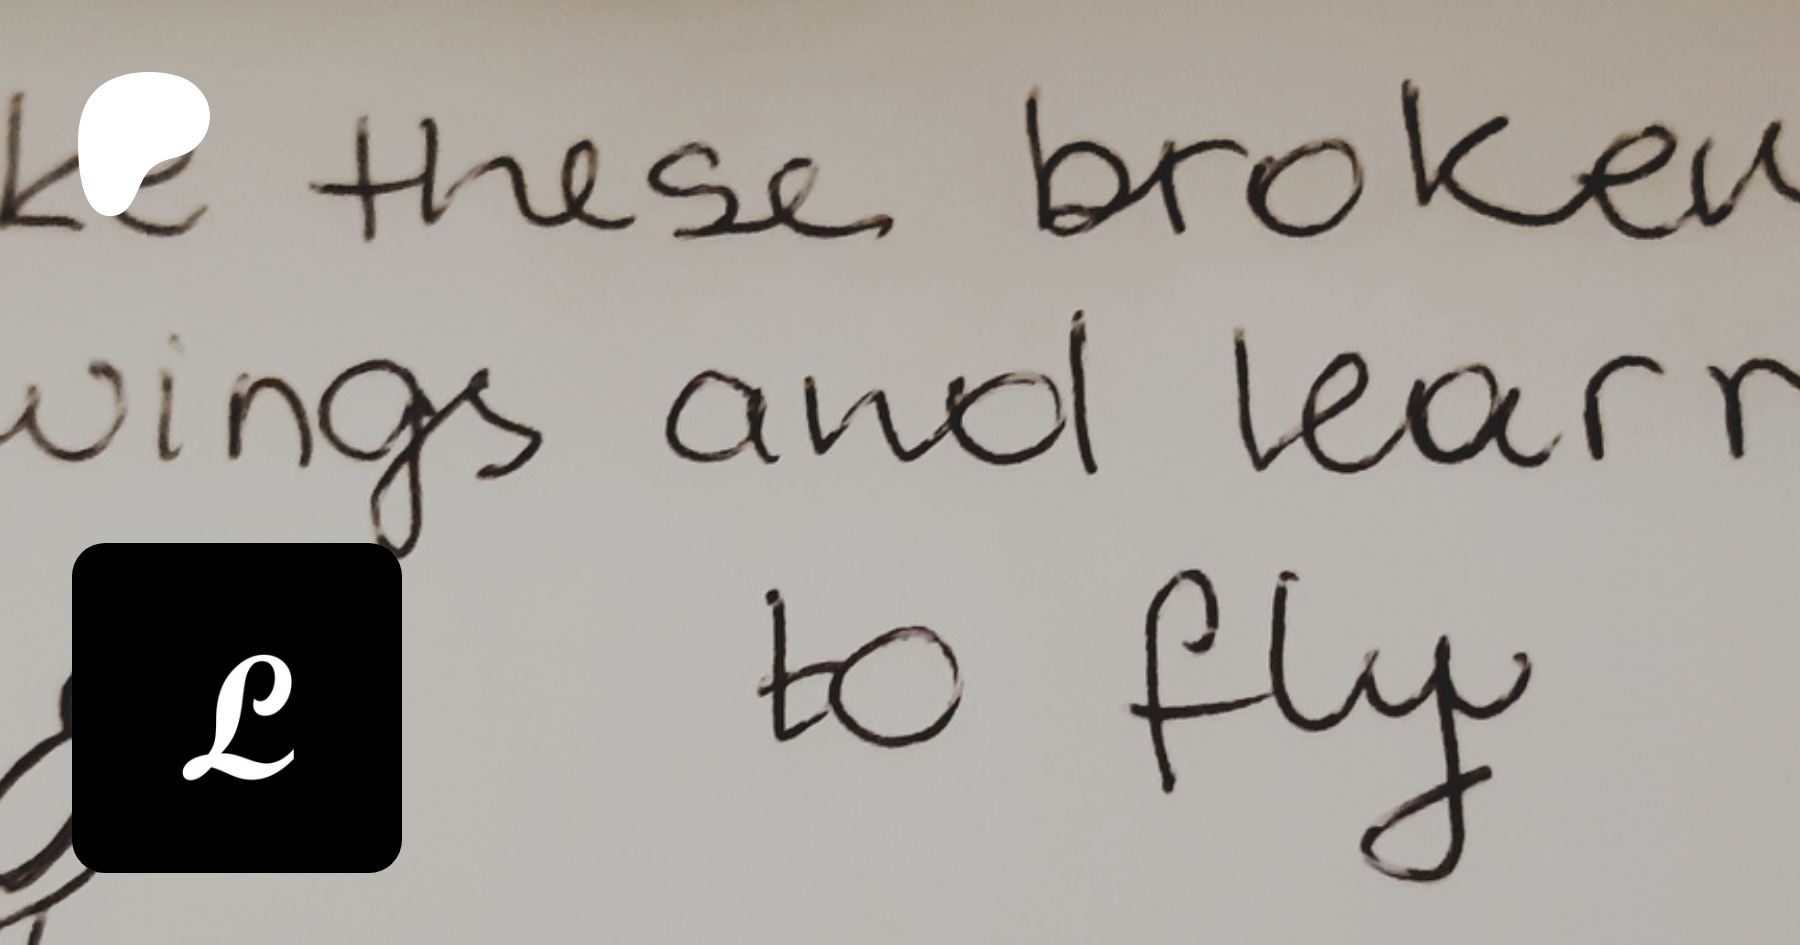 ke these broken
wings and learn
to fly
ℒ